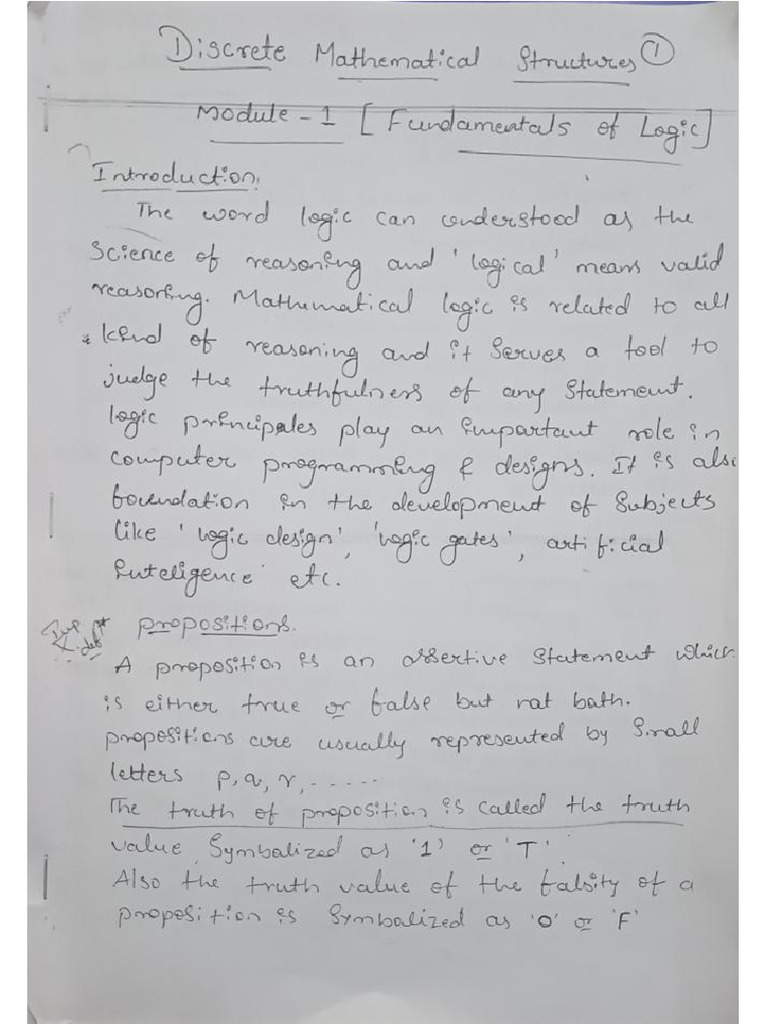 Discrete Mathematical Structures ①
Module - 1 [Fundamentals of Logic]
Introduction.
The word logic can understood as the
Science of reasoning and 'logical' means valid
reasoning. Mathematical logic is related to all
* kind of reasoning and it serves a tool to
judge the truthfulness of any Statement.
logic principales play an important role in
computer programming & designs. It is also
foundation in the development of Subjects
like 'logic design', 'logic gates', artificial
inteligence etc.
propositions.
A proposition is an assertive Statement which
is either true or false but not both.
propositions are usually represented by Small
letters p, q, r, ......
The truth of proposition is called the truth
value symbolized as '1' or 'T'.
Also the truth value of the falsity of a
proposition is symbolized as '0' or 'F'